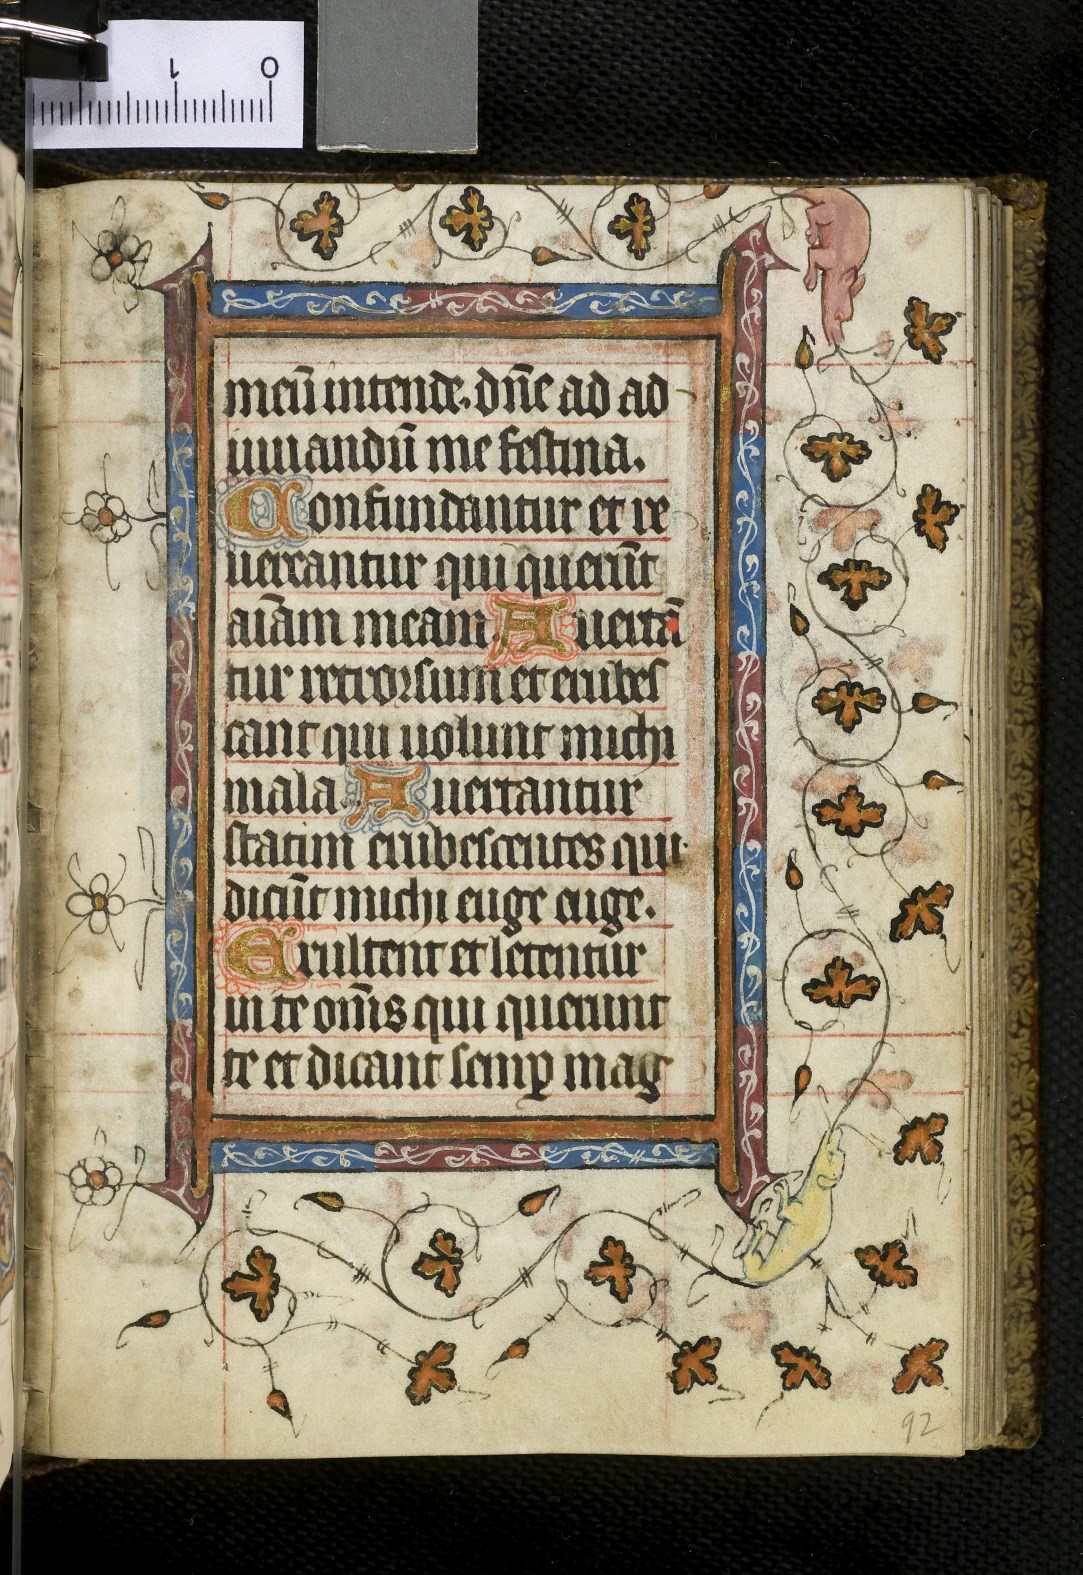 1 0
meū intende. dn̄e ad ad
iuuandū me festina.
Confundantur et re
uereantur qui querūt
aīam meam Auertā
tur retrorsum et erubes
cant qui uolunt michi
mala Auertantur
statim erubescentes qui
dicūt michi euge euge.
Exultent et letentur
in te om̄s qui querunt
te et dicant semꝑ mag
92